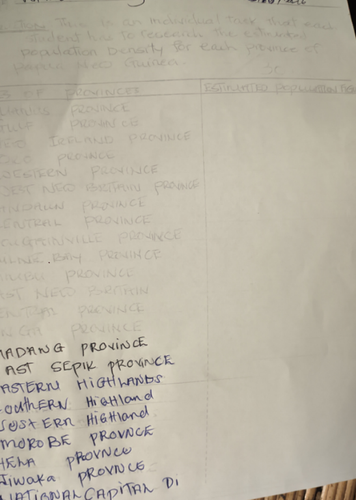 Task: This is an individual Task that each
student has to research the estimated
population Density for each province of
Papua New Guinea.
S OF PROVINCES ESTIMATED POPULATION
MANUS PROVINCE
GULF PROVINCE
IRELAND PROVINCE
ORO PROVINCE
WESTERN PROVINCE
WEST NEW BRITAIN PROVINCE
SANDAUN PROVINCE
CENTRAL PROVINCE
BOUGAINVILLE PROVINCE
MILNE BAY PROVINCE
SIMBU PROVINCE
EAST NEW BRITAIN
PROVINCE
PROVINCE
MADANG PROVINCE
EAST SEPIK PROVINCE
EASTERN HIGHLANDS
Southern Highland
western Highland
MOROBE PROVNCE
HELA PROVNCE
Jiwaka PROVNCE
NATIONAL CAPITAL DI